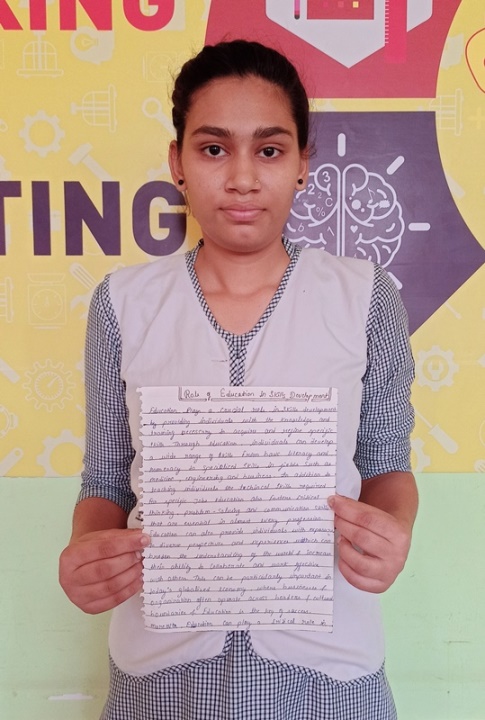 KING
TING
Role of Education In Skills Development
Education Plays a crucial role In Skills development
by providing Individuals with the knowledge and
training necessary to acquire and refine specific
Skills Through education Individuals can develop
a wide range of Skills from basic literacy and
numeracy to specialized Skills in fields Such as
medicine, engineering and business In addition to
teaching individuals the technical Skills required
for specific Jobs education also fosters critical
thinking problem-solving and communication Skills
that are essential in almost every profession
Education can also provide individuals with exposure
to diverse perspectives and experiences which can
broaden the understanding of the world & Increase
their ability to collaborate and work effective
with others This can be particularly important in
today's globalized economy where businesses &
organisation often operate across borders & cultural
boundaries & Education is the key of success
Education can play a critical role in